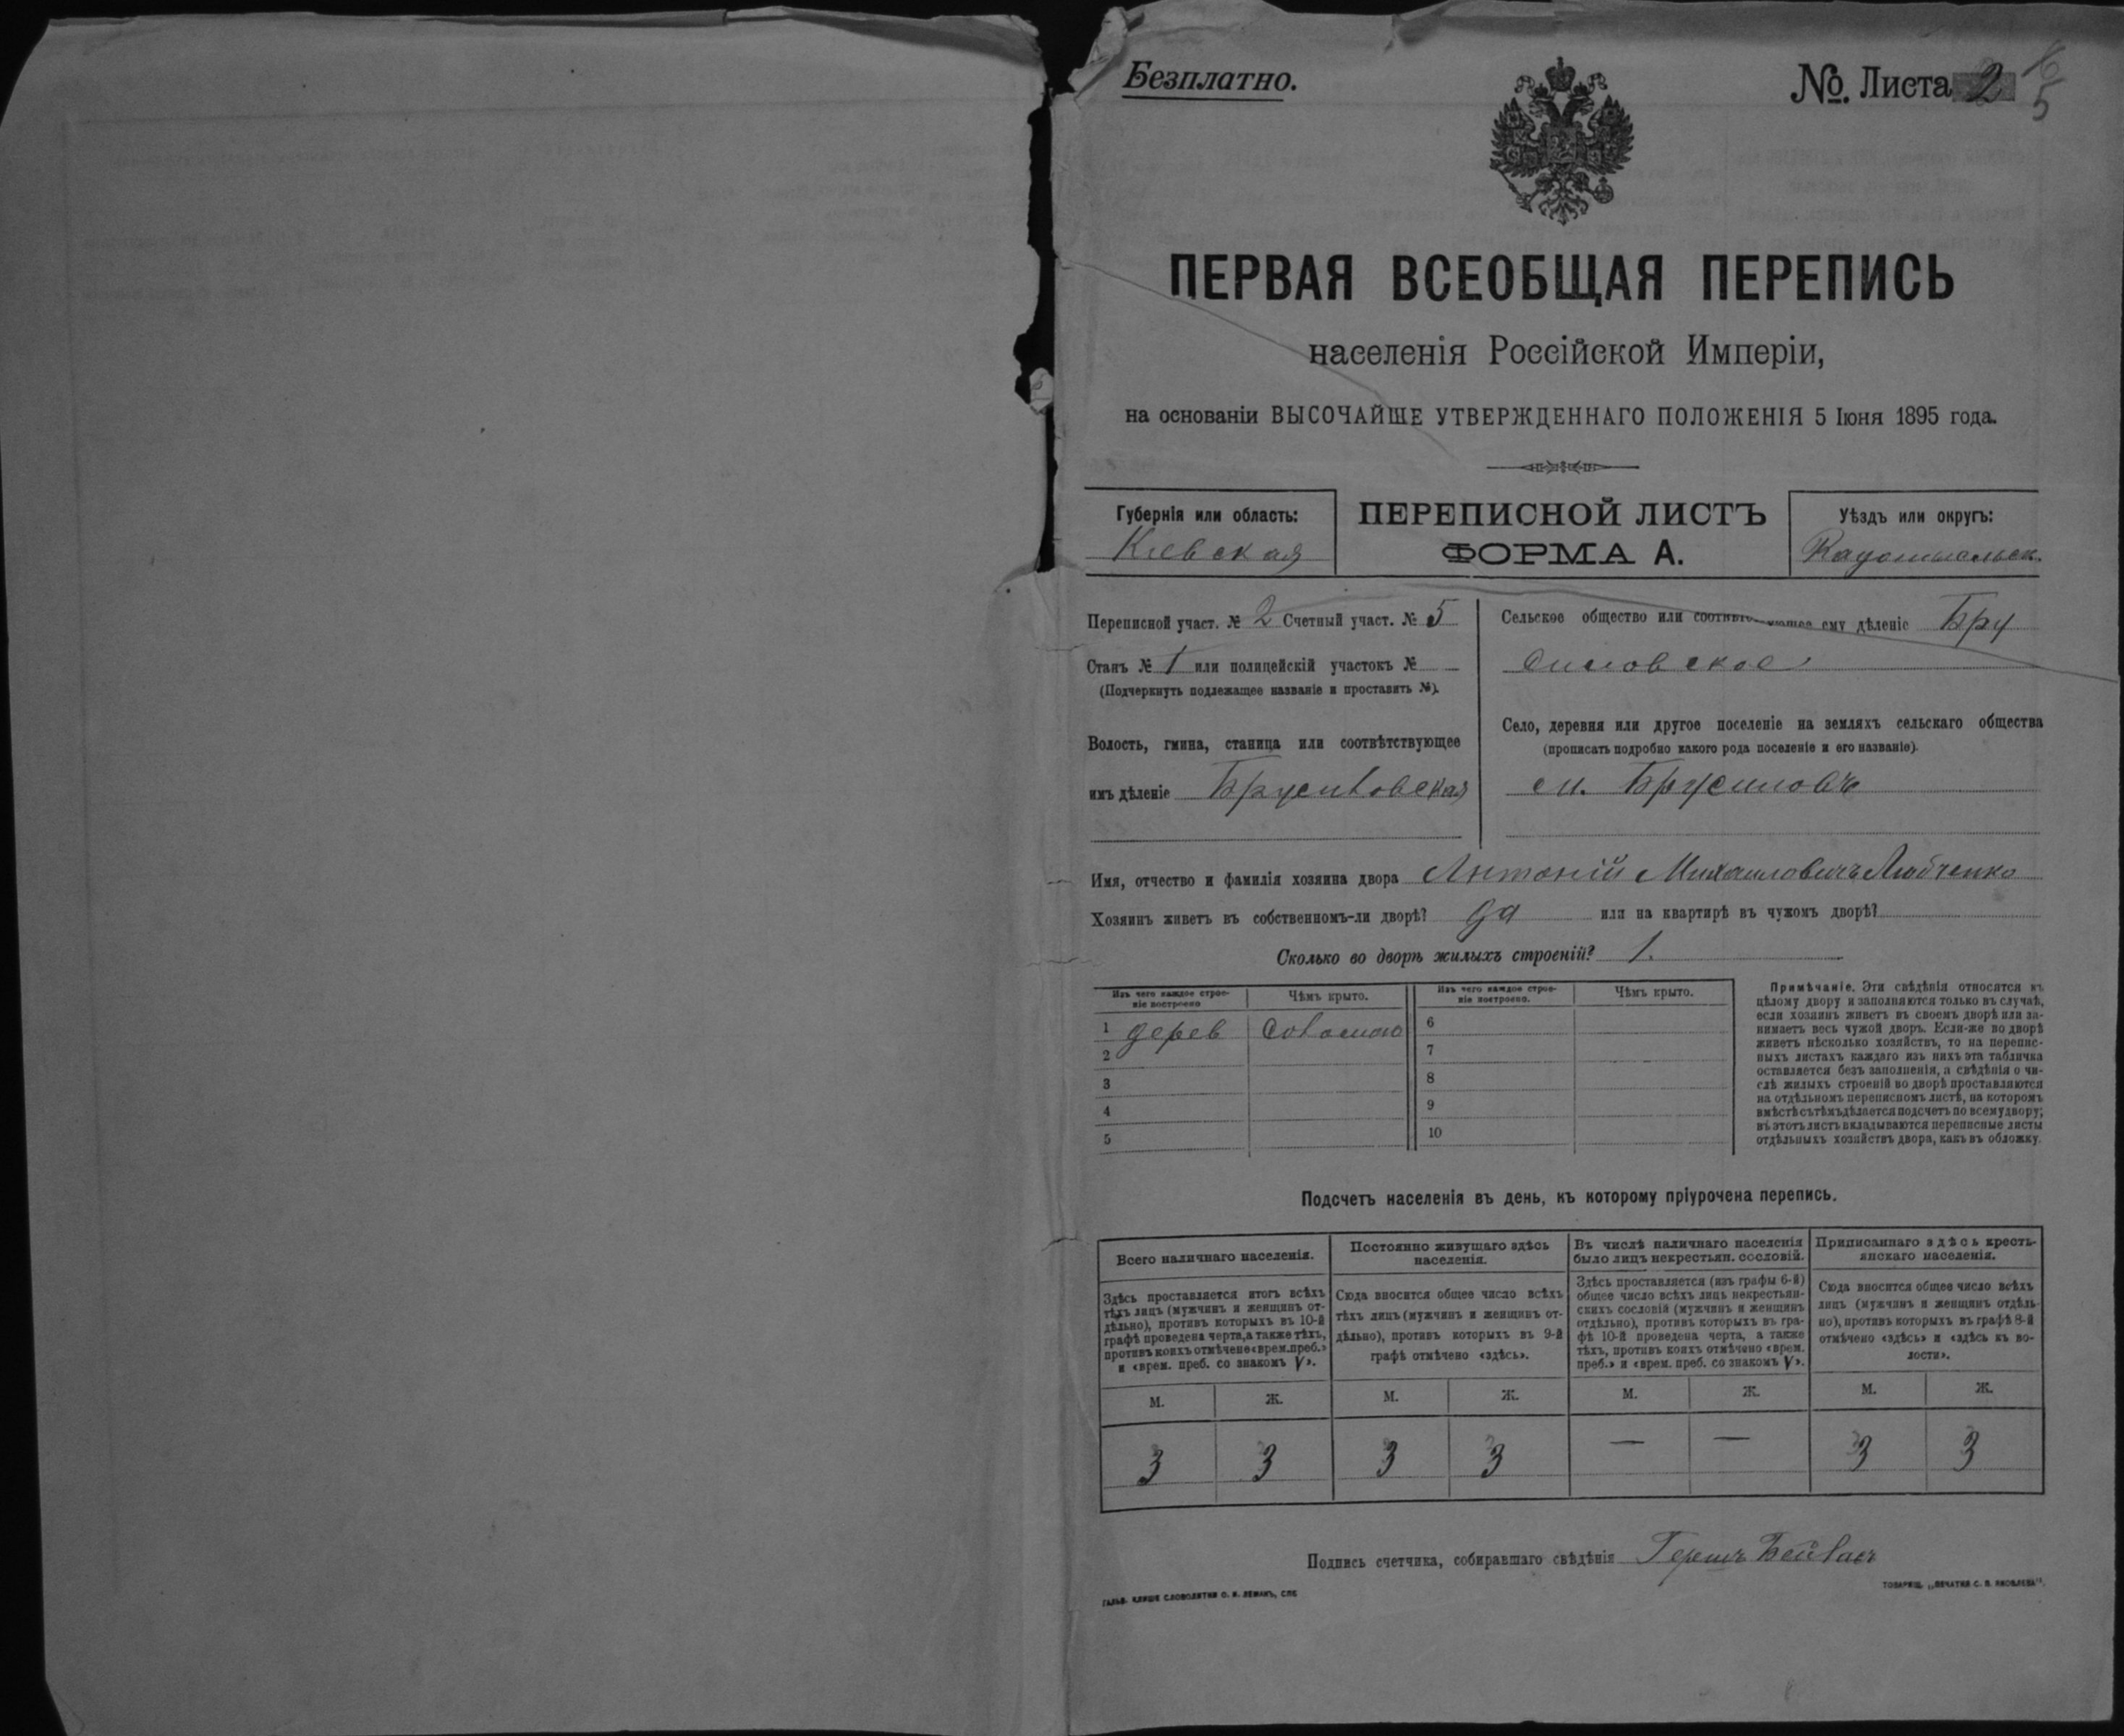 Безплатно.
№. Листа 2
5
ПЕРВАЯ ВСЕОБЩАЯ ПЕРЕПИСЬ
населенія Россійской Имперіи,
на основаніи ВЫСОЧАЙШЕ УТВЕРЖДЕННАГО ПОЛОЖЕНІЯ 5 Іюня 1895 года.
Губернія или область:
Кіевская
ПЕРЕПИСНОЙ ЛИСТЪ
ФОРМА А.
Уѣздъ или округъ:
Радомысльск.
Переписной участ. № 2 Счетный участ. № 5
Станъ № 1 или полицейскій участокъ № —
(Подчеркнуть подлежащее названіе и проставить №).
Волость, гмина, станица или соотвѣтствующее
имъ дѣленіе Брусиловская
Сельское общество или соотвѣтствующее ему дѣленіе Бру
силовское
Село, деревня или другое поселеніе на земляхъ сельскаго общества
(прописать подробно какого рода поселеніе и его названіе).
м. Брусиловъ
Имя, отчество и фамилія хозяина двора Антоній Михаиловичъ Любченко
Хозяинъ живетъ въ собственномъ-ли дворѣ? да или на квартирѣ въ чужомъ дворѣ?
Сколько во дворѣ жилыхъ строеній? 1.
Изъ чего каждое строе-
ніе построено
Чѣмъ крыто.
Изъ чего каждое строе-
ніе построено.
Чѣмъ крыто.
1 дерев Соломою
2
3
4
5
6
7
8
9
10
Примѣчаніе. Эти свѣдѣнія относятся къ
цѣлому двору и заполняются только въ случаѣ,
если хозяинъ живетъ въ своемъ дворѣ или за-
нимаетъ весь чужой дворъ. Если-же во дворѣ
живетъ нѣсколько хозяйствъ, то на перепис-
ныхъ листахъ каждаго изъ нихъ эта табличка
оставляется безъ заполненія, а свѣдѣнія о чи-
слѣ жилыхъ строеній во дворѣ проставляются
на отдѣльномъ переписномъ листѣ, на которомъ
вмѣстѣ съ тѣмъ дѣлается подсчетъ по всему двору;
въ этотъ листъ вкладываются переписные листы
отдѣльныхъ хозяйствъ двора, какъ въ обложку.
Подсчетъ населенія въ день, къ которому пріурочена перепись.
Всего наличнаго населенія.
Здѣсь проставляется итогъ всѣхъ
тѣхъ лицъ (мужчинъ и женщинъ от-
дѣльно), противъ которыхъ въ 10-й
графѣ проведена черта, а также тѣхъ,
противъ коихъ отмѣчено «врем. преб.»
и «врем. преб. со знакомъ V».
Постоянно живущаго здѣсь
населенія.
Сюда вносится общее число всѣхъ
тѣхъ лицъ (мужчинъ и женщинъ от-
дѣльно), противъ которыхъ въ 9-й
графѣ отмѣчено «здѣсь».
Въ числѣ наличнаго населенія
было лицъ некрестьян. сословій.
Здѣсь проставляется (изъ графы 6-й)
общее число всѣхъ лицъ некрестьян-
скихъ сословій (мужчинъ и женщинъ
отдѣльно), противъ которыхъ въ гра-
фѣ 10-й проведена черта, а также
тѣхъ, противъ коихъ отмѣчено «врем.
преб.» и «врем. преб. со знакомъ V».
Приписаннаго здѣсь кресть-
янскаго населенія.
Сюда вносится общее число всѣхъ
лицъ (мужчинъ и женщинъ отдѣль-
но), противъ которыхъ въ графѣ 8-й
отмѣчено «здѣсь» и «здѣсь къ во-
лости».
М. Ж. М. Ж. М. Ж. М. Ж.
3 3 3 3 — — 3 3
Подпись счетчика, собиравшаго свѣдѣнія Гершъ
ГАЛЬВ. КЛИШЕ СЛОВОЛИТНИ О. И. ЛЕМАНЪ, СПБ
ТОВАРИЩ. „ПЕЧАТНЯ С. П. ЯКОВЛЕВА".